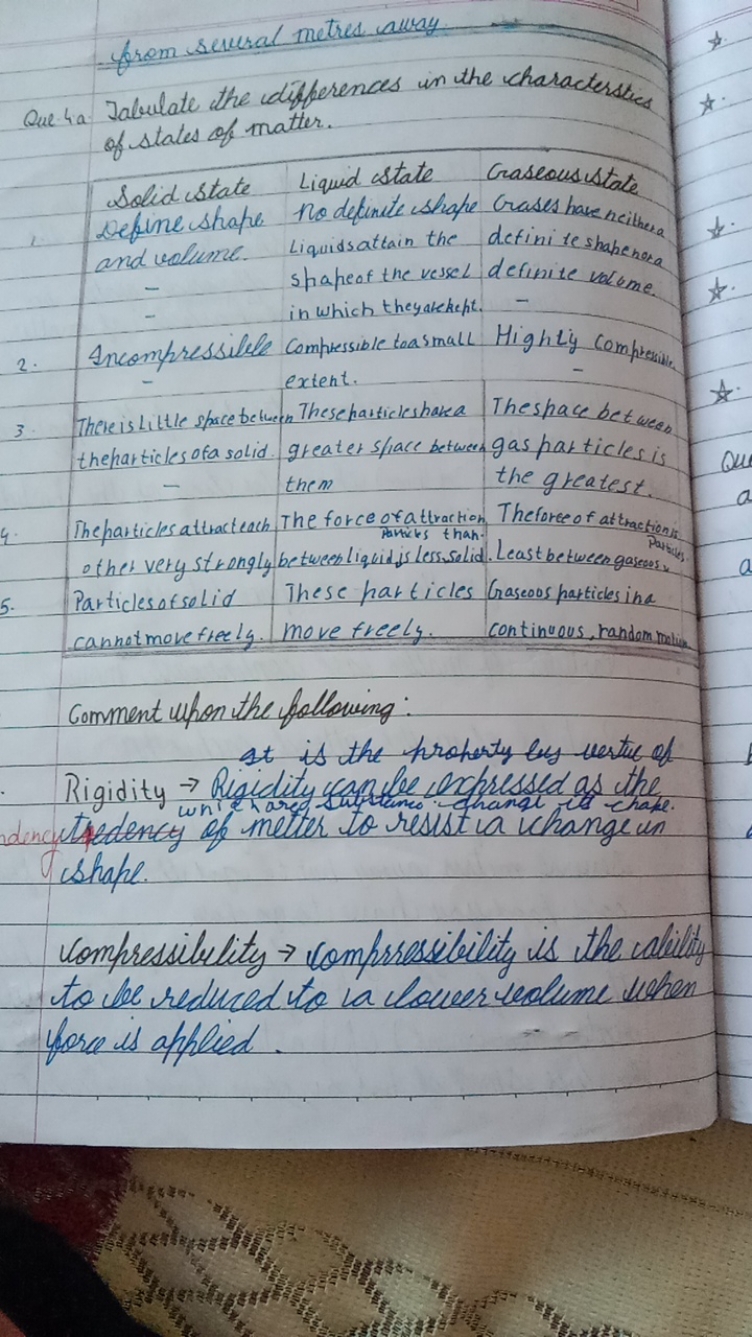 from several metres away.
Que 4 a. Tabulate the differences in the characterstics
of states of matter.
Solid state Liquid state Gaseous state
1. Define shape No definite shape Gases have neither a
and volume. Liquids attain the definite shape nor a
- shape of the vessel definite volume.
- in which they are kept. -
2. Incompressible Compressible to a small Highly compressible.
- extent. -
3 There is little space between These particles have a The space between
the particles of a solid. greater space between gas particles is
- them the greatest.
4. The particles attract each The force of attraction The force of attraction is
Particles than. Particles
other very strongly between liquid is less solid. Least between gaseous
5. Particles of solid These particles Gaseous particles in a
cannot move freely. move freely. continuous, random motion
Comment upon the following:
It is the property by vertue of
Rigidity → Rigidity can be expressed as the
which a substance change its shape.
tredency of metter to resist a change in
shape.
Compressibility → compressibility is the ability
to be reduced to a lower volume when
force is applied.
Que
a
a